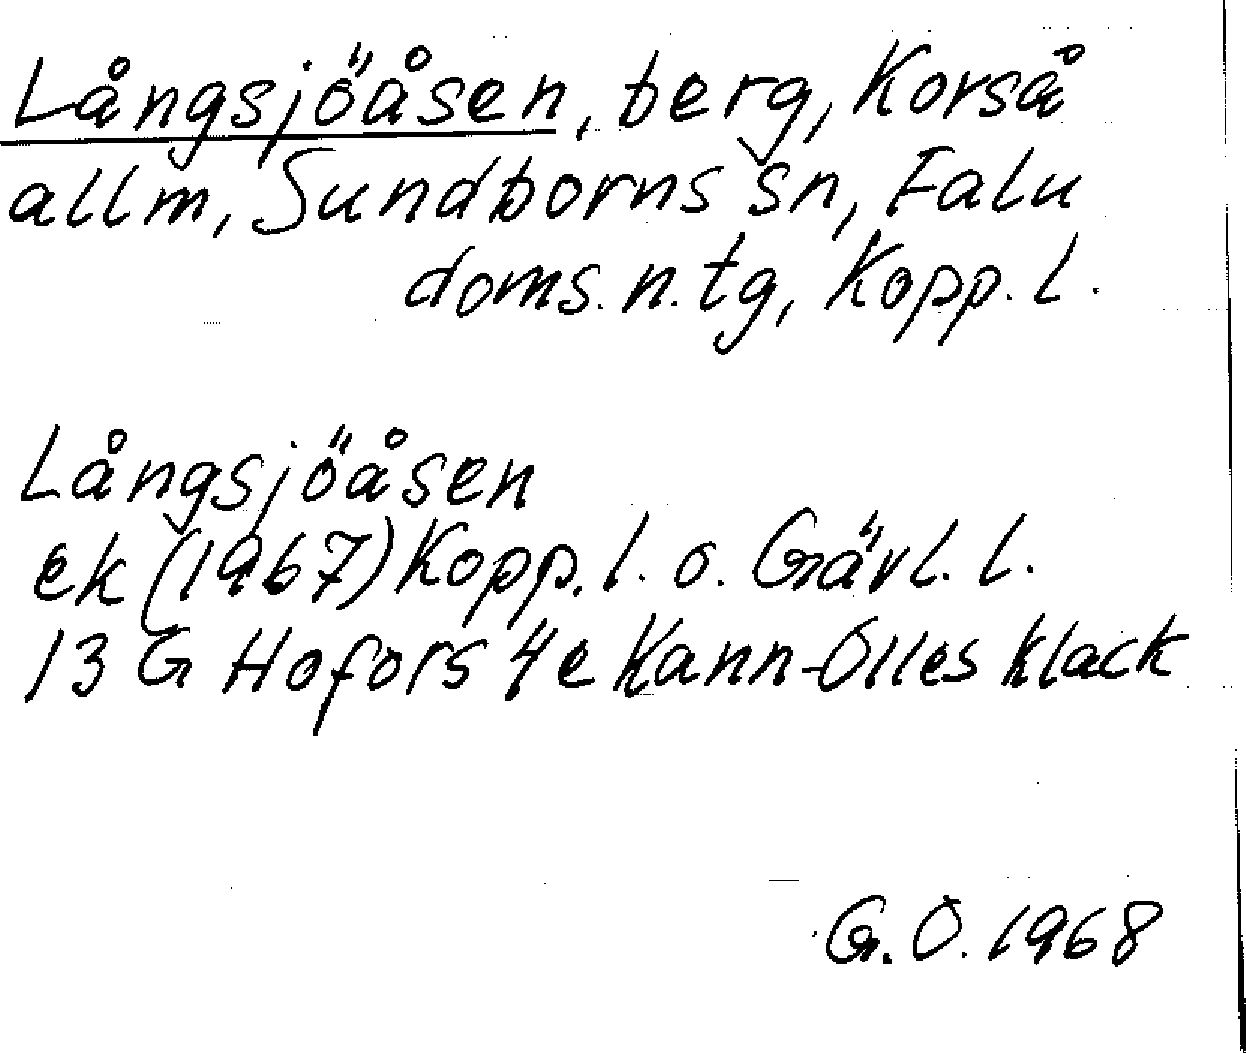 Långsjöåsen, berg, Korså
allm, Sundborns sn, Falu
doms. n. tg, Kopp. l.
Långsjöåsen
ek (1967) Kopp. l. o. Gävl. l.
13 G Hofors 4e Kann-Olles klack
G. O. 1968